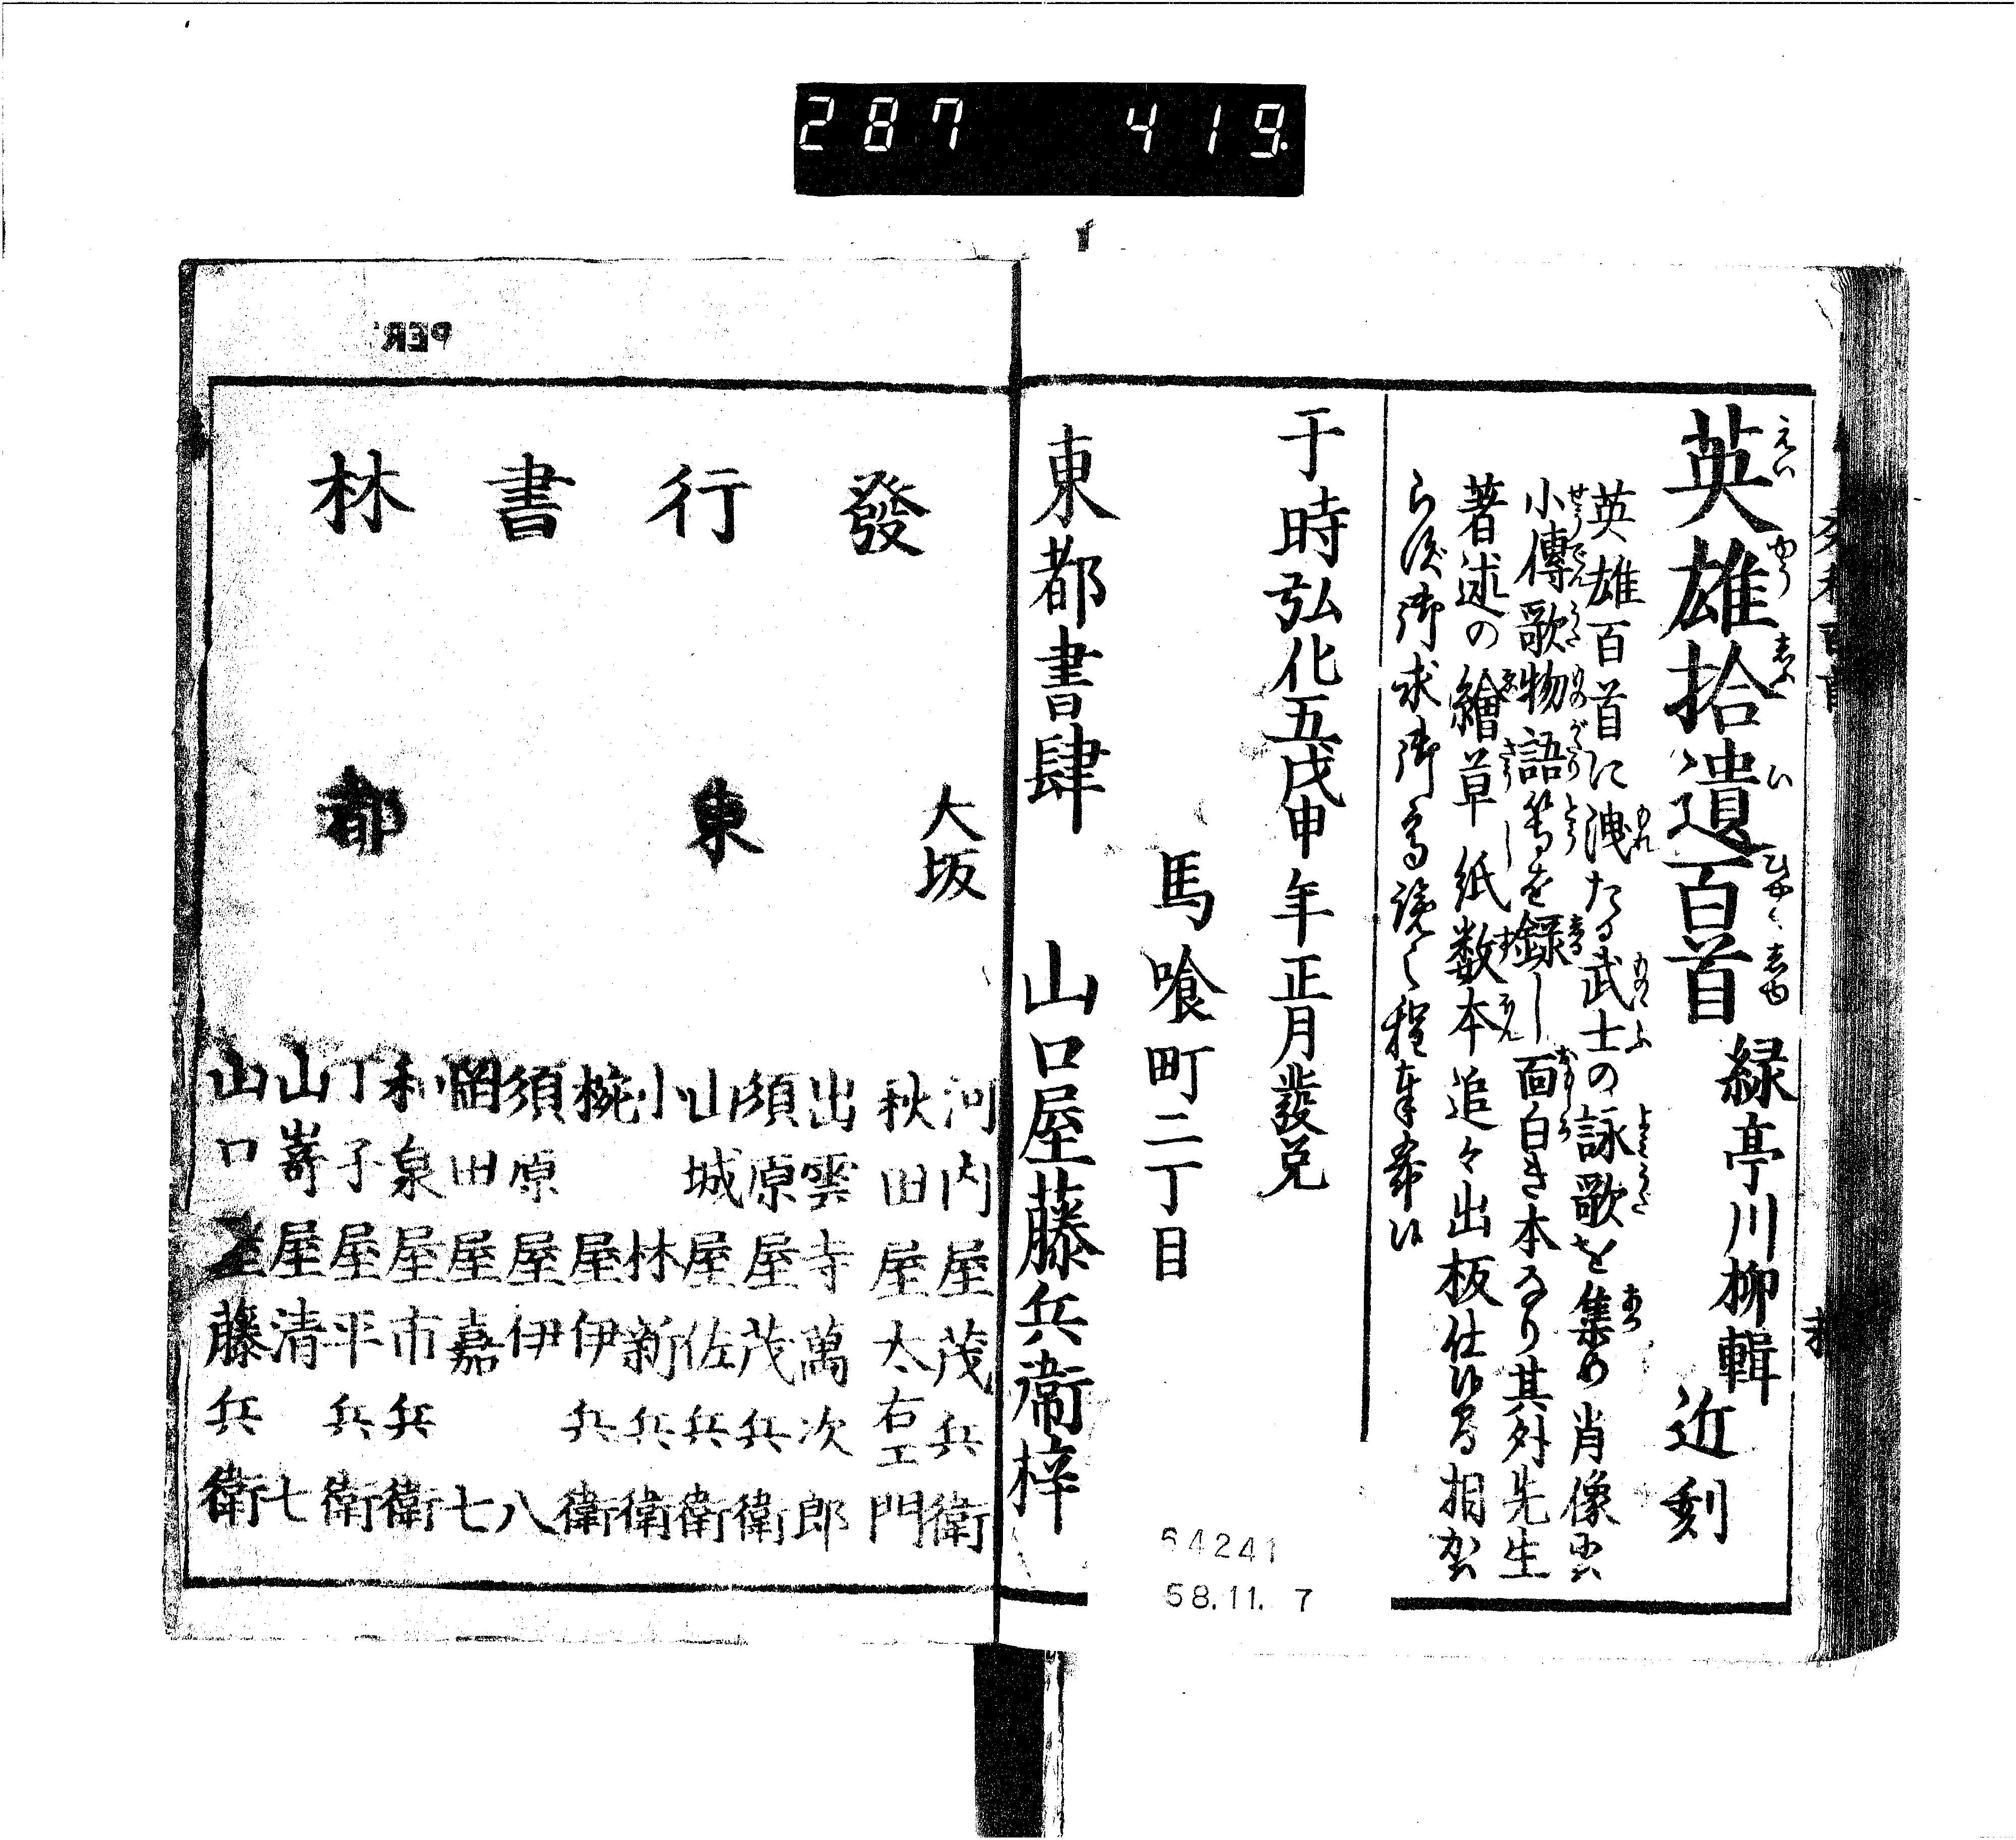 287 419
英雄拾遺百首 緑亭川柳輯 近刻
えいゆうしふいひやくしゆ
英雄百首に洩たる武士の詠歌を集め肖像并
小傳歌物語等を録し面白き本なり其外先生
著述の繪草紙数本追々出板仕候間相かは
らず御求御高覧之程奉希候
于時弘化五戊申年正月發兌
馬喰町二丁目
東都書肆 山口屋藤兵衛梓
64241
58.11.7
發行書林
大坂
河内屋茂兵衛
秋田屋太右エ門
東都
出雲寺萬次郎
須原屋茂兵衛
山城屋佐兵衛
小林新兵衛
椀屋伊兵衛
須原屋伊八
岡田屋嘉七
和泉屋市兵衛
丁子屋平兵衛
山嵜屋清七
山口屋藤兵衛